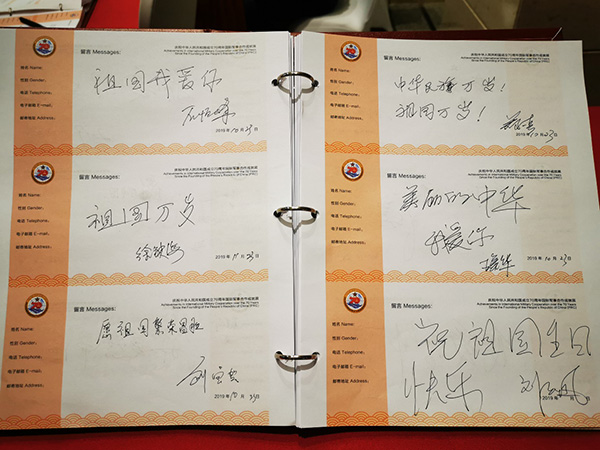 留言 Messages:
庆祝中华人民共和国成立70周年国际军事合作成就展
Achievements in International Military Cooperation over the 70 Years
Since the Founding of the People's Republic of China (PRC)
姓名 Name:
性别 Gender:
电话 Telephone:
电子邮箱 E-mail:
邮寄地址 Address:
祖国我爱你
2019年10月23日
留言 Messages:
庆祝中华人民共和国成立70周年国际军事合作成就展
Achievements in International Military Cooperation over the 70 Years
Since the Founding of the People's Republic of China (PRC)
姓名 Name:
性别 Gender:
电话 Telephone:
电子邮箱 E-mail:
邮寄地址 Address:
祖国万岁
2019年
月23日
留言 Messages:
庆祝中华人民共和国成立70周年国际军事合作成就展
Achievements in International Military Cooperation over the 70 Years
Since the Founding of the People's Republic of China (PRC)
姓名 Name:
性别 Gender:
电话 Telephone:
电子邮箱 E-mail:
邮寄地址 Address:
愿祖国繁荣昌盛
2019年10月23日
留言 Messages:
庆祝中华人民共和国成立70周年国际军事合作成就展
Achievements in International Military Cooperation over the 70 Years
Since the Founding of the People's Republic of China (PRC)
姓名 Name:
性别 Gender:
电话 Telephone:
电子邮箱 E-mail:
邮寄地址 Address:
中华民族万岁！
祖国万岁！
2019年10月23日
留言 Messages:
庆祝中华人民共和国成立70周年国际军事合作成就展
Achievements in International Military Cooperation over the 70 Years
Since the Founding of the People's Republic of China (PRC)
姓名 Name:
性别 Gender:
电话 Telephone:
电子邮箱 E-mail:
邮寄地址 Address:
美丽的中华
我爱你
2019年10月23日
留言 Messages:
庆祝中华人民共和国成立70周年国际军事合作成就展
Achievements in International Military Cooperation over the 70 Years
Since the Founding of the People's Republic of China (PRC)
姓名 Name:
性别 Gender:
电话 Telephone:
电子邮箱 E-mail:
邮寄地址 Address:
祝祖国生日
快乐
2019年
月
日